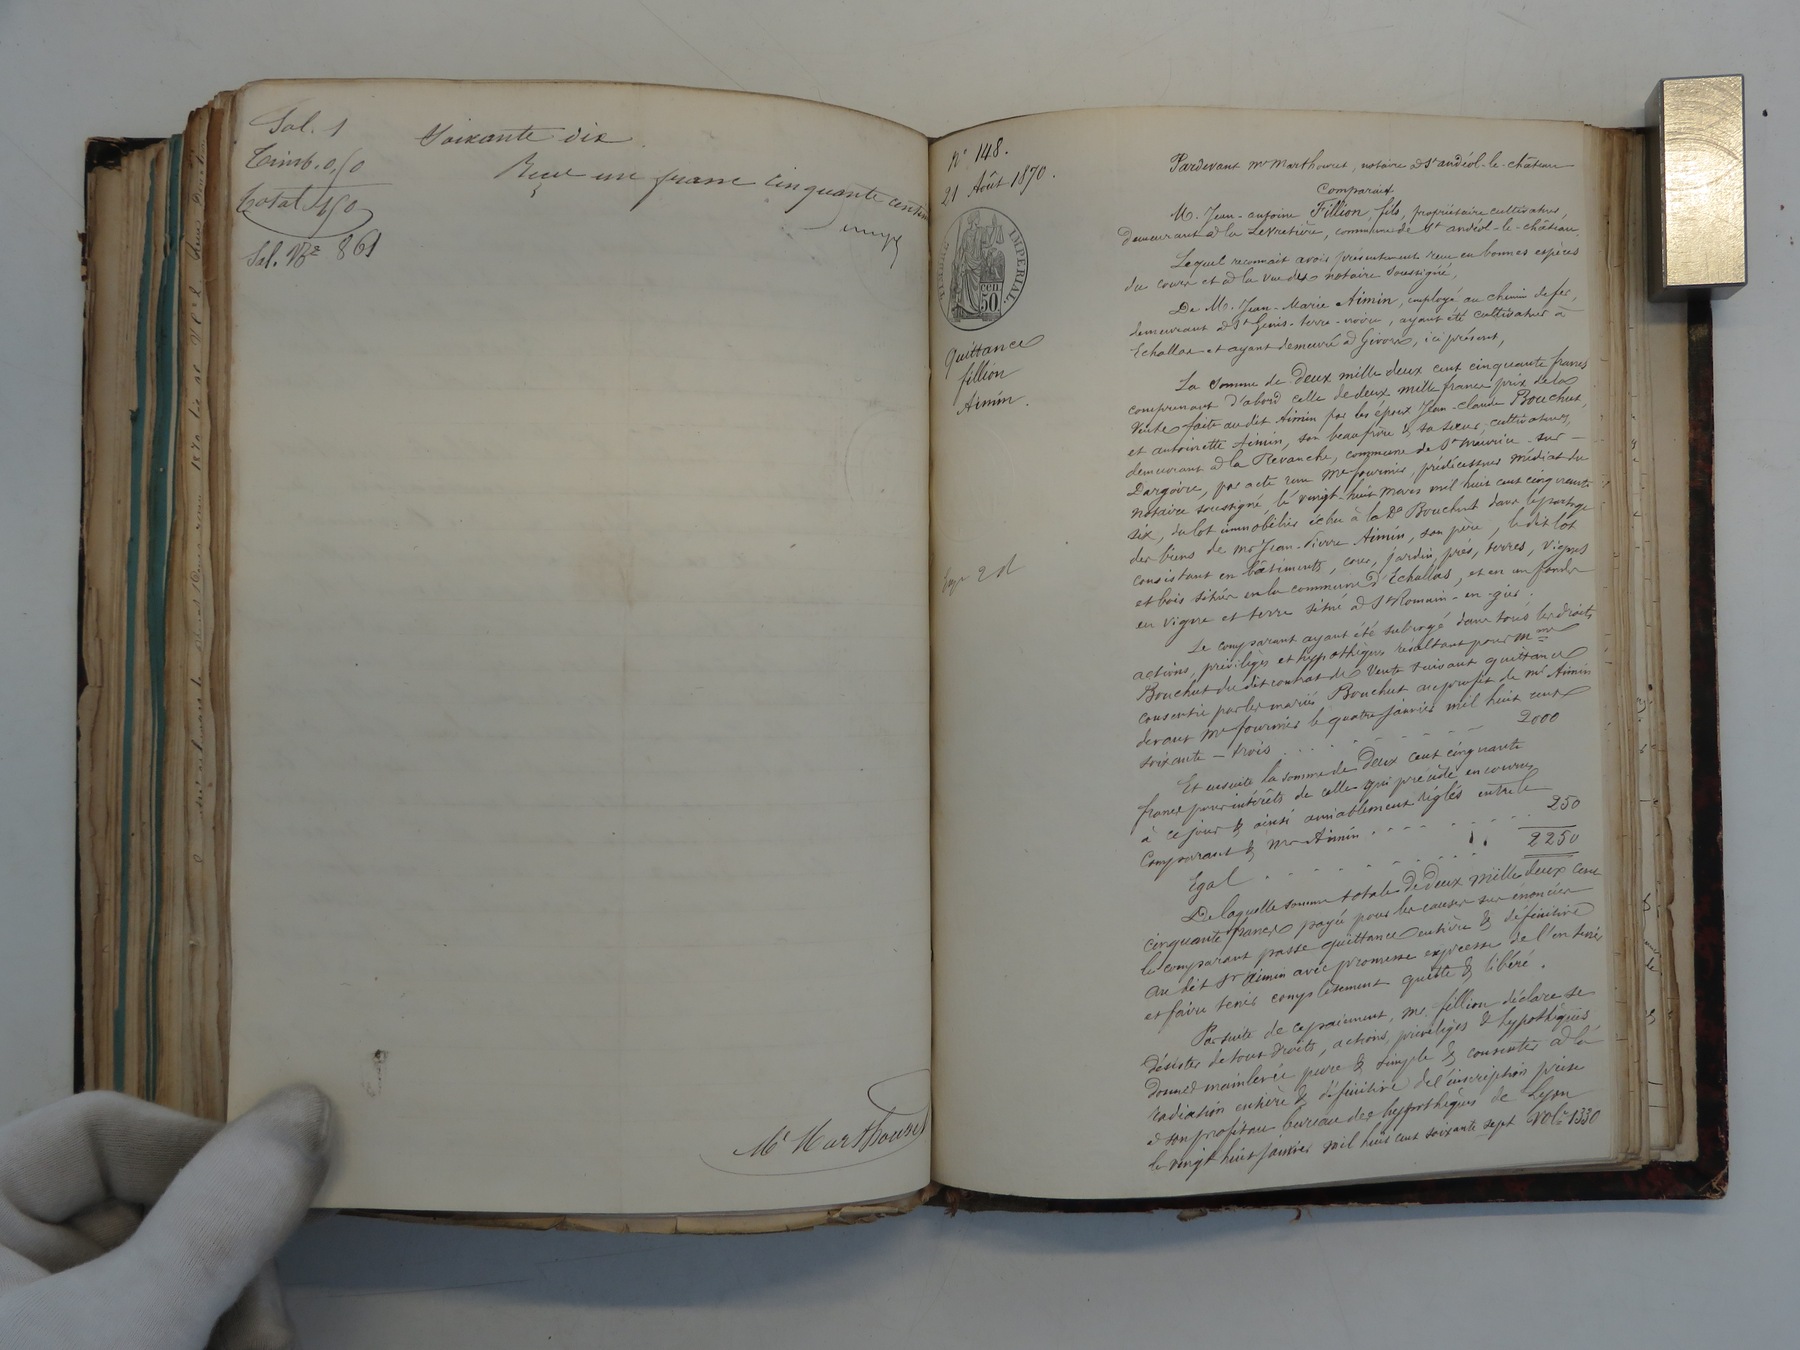 Sal. 1
Timb. 0,50
Total 1,50
Sal. Vre 861
Soixante dix
Reçu un franc cinquante centimes
Me Marthouret
No 148.
21 Août 1870.
TIMBRE IMPERIAL
50 cen
Quittance
fillion
Aimin.
Exp 2 d
Pardevant me Marthouret, notaire à St andéol-le-château
Comparait
M. Jean-antoine Fillion, fils, propriétaire cultivateur,
demeurant à la Levretière, commune de St andéol-le-château.
Lequel reconnait avoir présentement reçu en bonnes espèces
du cours et à la vue du notaire soussigné,
De M. Jean-Marie Aimin, employé au chemin de fer,
demeurant à St Genis-terre-noire, ayant été cultivateur à
Echallas et ayant demeuré à Givors, ici présent,
La somme de Deux mille deux cent cinquante francs
comprenant d'abord celle de deux mille francs prix de la
Vente faite au dit Aimin par les époux Jean-Claude Bouchut,
et antoinette Aimin, son beaufrère & sa sœur, cultivateurs,
demeurant à la Revanche, commune de St maurice-sur-
Dargoire, par acte reçu Me fournier, prédécesseur médiat du
notaire soussigné, le vingt-huit mars mil huit cent cinquante
six, du lot immobilier échu à la De Bouchut dans le partage
des biens de mr Jean-Pierre Aimin, son père, le dit lot
consistant en bâtiments, cour, jardin, prés, terres, vignes
et bois situés en la commune d'Echallas, et en un fonds
en vigne et terre situé à St Romain-en-gier.
Le comparant ayant été subrogé dans tous les droits,
actions, privilèges et hypothèques résultant pour Mme
Bouchut du dit contrat de Vente suivant quittance
consentie par les mariés Bouchut au profit de mr Aimin
devant Me fournier le quatre janvier mil huit cent
soixante-trois 2000
Et ensuite la somme de Deux cent cinquante
francs pour intérêts de celle qui précède encourus
à ce jour & ainsi amiablement réglés entre le
Comparant & Mr Aimin 250
Egal 2250
De laquelle somme totale de Deux mille deux cent
cinquante francs payée pour les causes sus énoncées
le comparant passe quittance entière & définitive
au dit Sr Aimin avec promesse expresse de l'en tenir
et faire tenir complètement quitte & libéré.
Par suite de ce paiement, Mr. fillion déclare se
désister de tous droits, actions, privilèges & hypothèques
donner mainlevée pure & simple & consentir à la
radiation entière & définitive de l'inscription prise
à son profit au bureau des hypothèques de Lyon
le vingt huit janvier mil huit cent soixante sept Vol. 1330